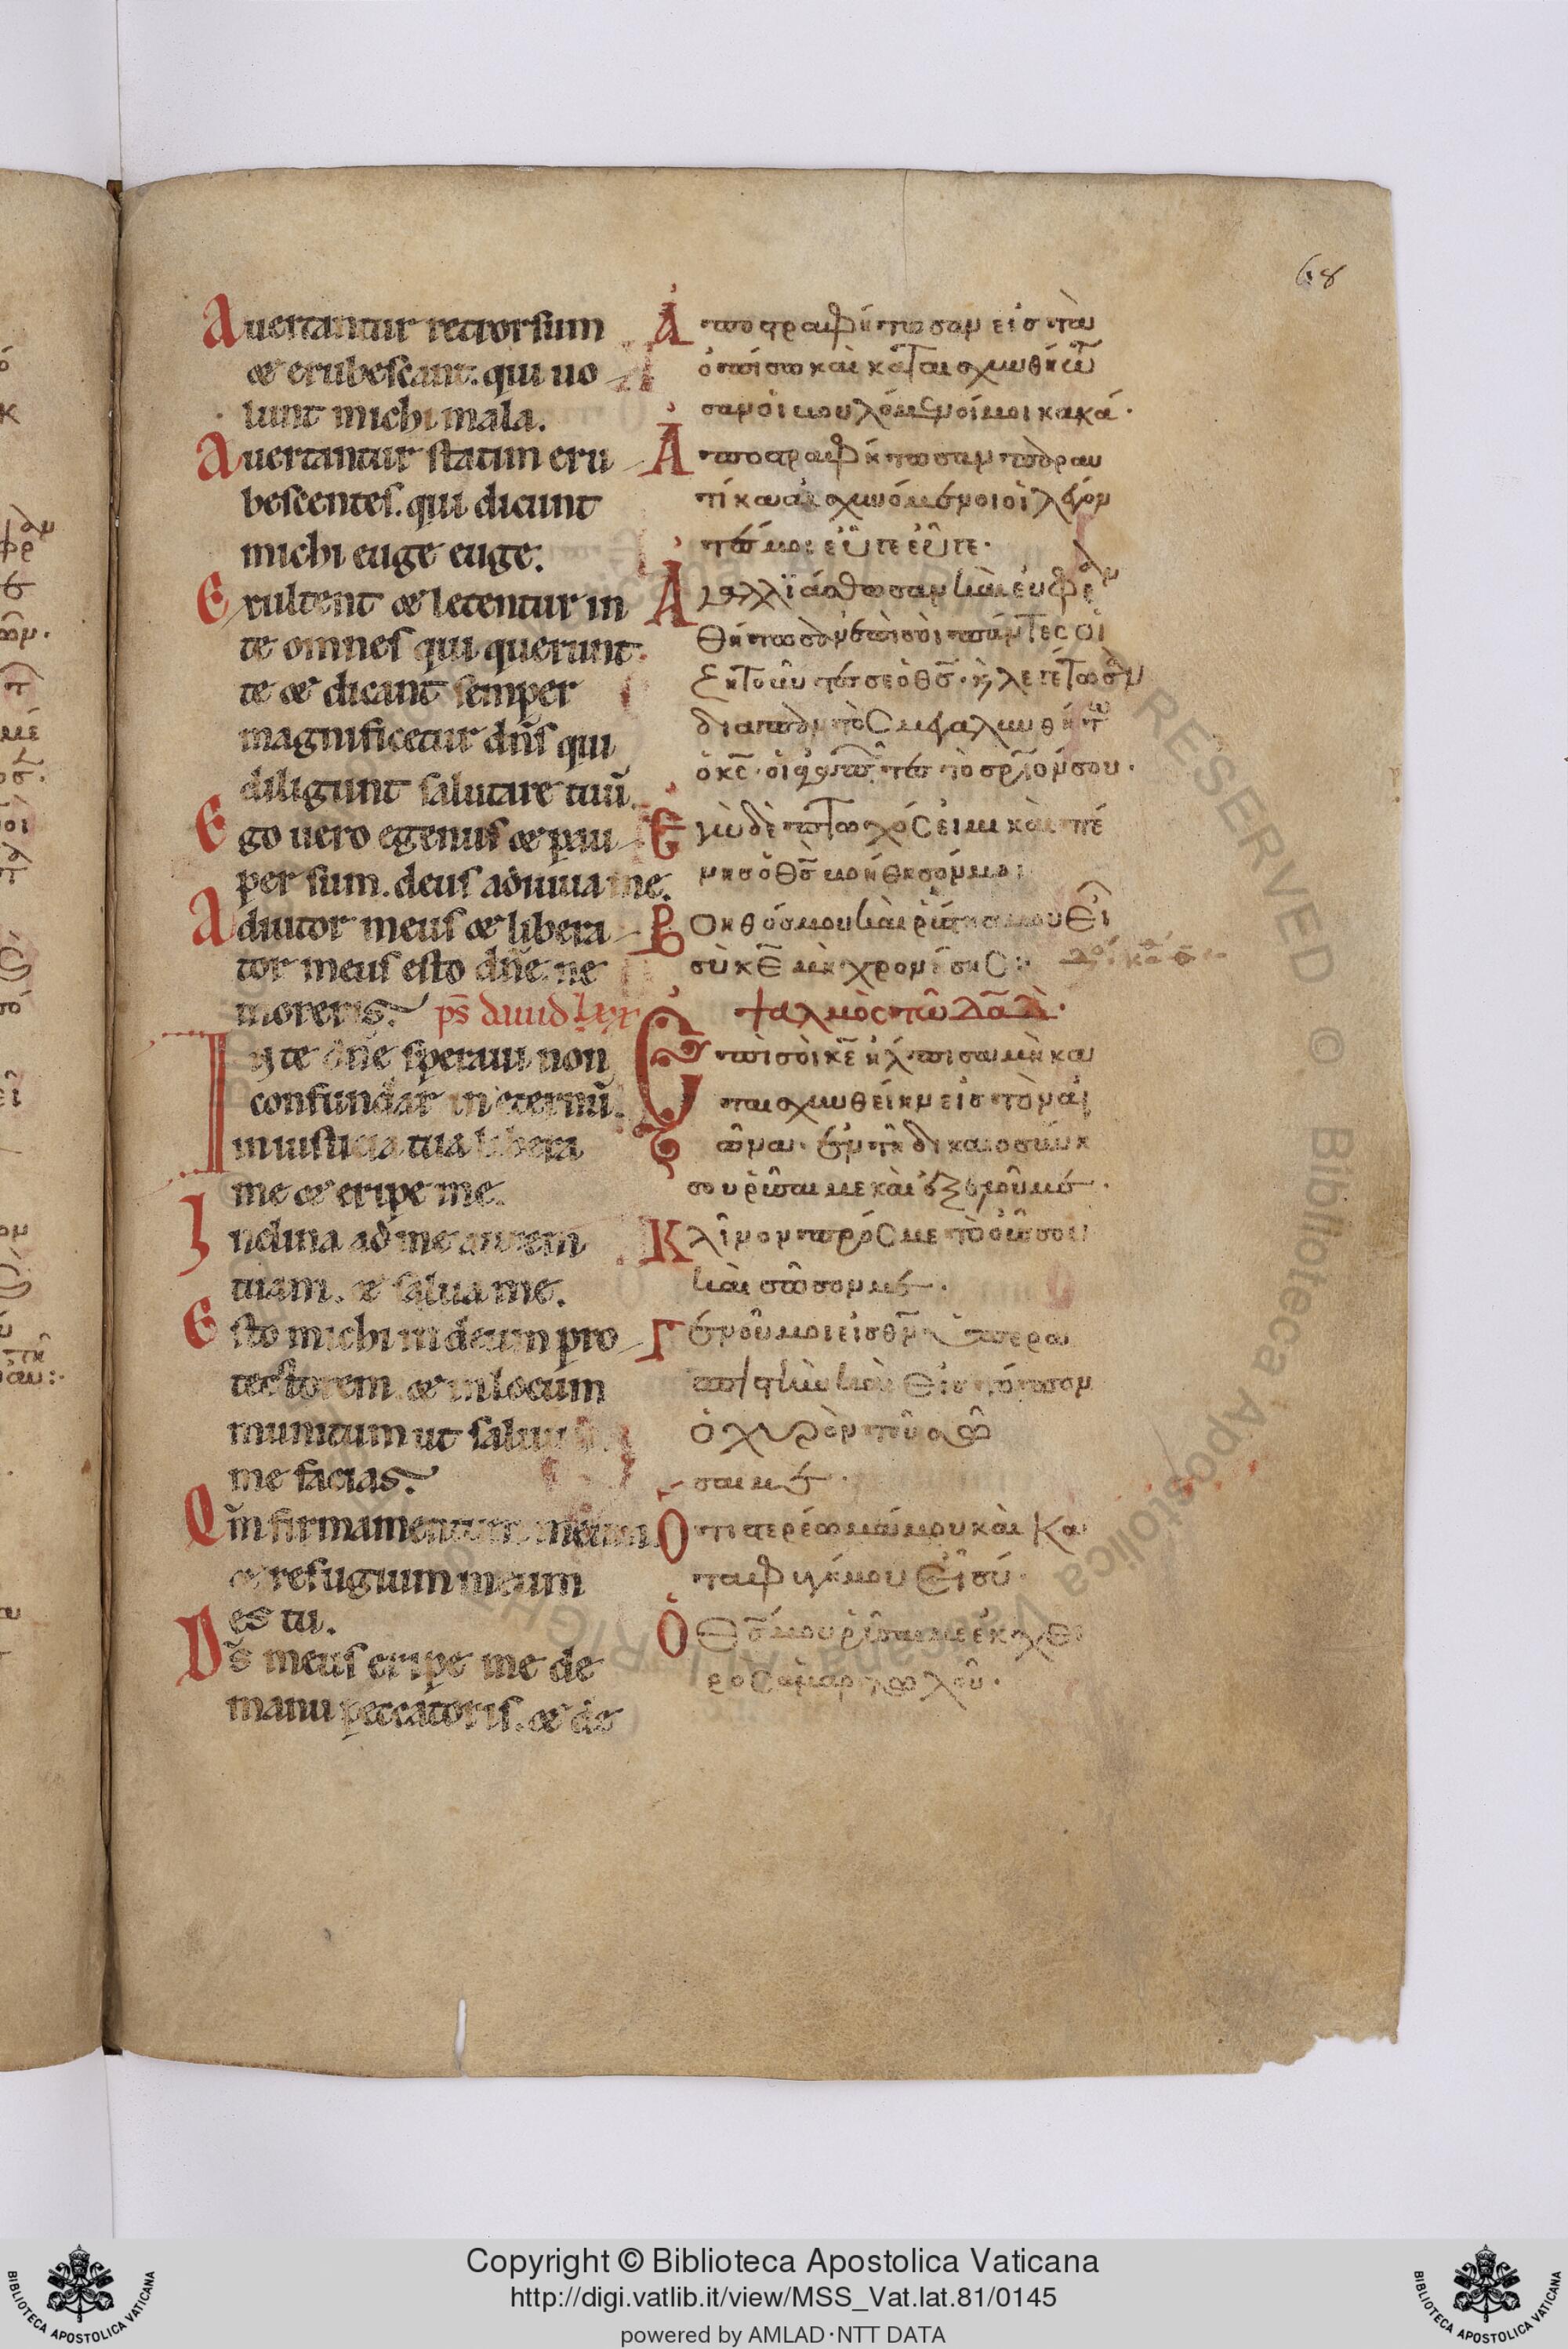 68
Auertantur retrorsum
& erubescant. qui uo
lunt michi mala.
Auertantur statim eru
bescentes. qui dicunt
michi euge euge.
Exultent & letentur in
te omnes qui querunt
te & dicant semper
magnificetur dn̄s qui
diligunt salutare tuū.
Ego uero egenus & pau
per sum. deus adiuua me.
Adiutor meus & libera
tor meus esto dn̄e ne
moreris. ps̄ dauid lxx
In te dn̄e speraui non
confundar in eternū.
in iusticia tua libera
me & eripe me.
Inclina ad me aurem
tuam. & salua me.
Esto michi in deum pro
tectorem & in locum
munitum ut saluu
me facias.
Qm̄ firmamentum meum
& refugium meum
es tu.
Ds̄ meus eripe me de
manu peccatoris. & de
Ἀποστραφήτωσαν εἰς τὰ
ὀπίσω καὶ καταισχυνθήτω
σαν οἱ βουλόμενοί μοι κακά.
Ἀποστραφήτωσαν παραυ
τίκα αἰσχυνόμενοι οἱ λέγον
τές μοι εὖγε εὖγε.
Ἀγαλλιάσθωσαν καὶ εὐφραν
θήτωσαν ἐπὶ σοὶ πάντες οἱ
ζητοῦντές σε ὁ θς̄. κ λεγέτωσαν
διαπαντὸς μεγαλυνθήτω
ὁ κς̄. οἱ ἀγαπῶντες τὸ σρ̄ιόν σου.
Ἐγὼ δὲ πτωχός εἰμι καὶ πέ
νης ὁ θς̄ βοήθησόν μοι
Βοηθός μου καὶ ῥύστης μου εἶ
σὺ κε̄ μὴ χρονίσῃς
ψαλμὸς τῶ δαδ̄.
Ἐπὶ σοὶ κε̄ ἤλπισα μὴ κα
ταισχυνθείην εἰς τὸν αἰ
ῶνα. ἐν τῇ δικαιοσύνη
σου ῥῦσαι με καὶ ἐξελοῦ με.
Κλῖνον πρός με τὸ οὖς σου
καὶ σῶσον με.
Γενοῦ μοι εἰς θν̄ ὑπερα
σπιστὴν καὶ εἰς τόπον
ὀχυρὸν τοῦ σῶ
σαι με.
Ὅτι στερέωμά μου καὶ κα
ταφυγή μου εἶ σύ.
Ὁ θς̄ μου ῥῦσαι με ἐκ χει
ρὸς ἁμαρτωλοῦ.
Copyright © Biblioteca Apostolica Vaticana
http://digi.vatlib.it/view/MSS_Vat.lat.81/0145
powered by AMLAD·NTT DATA